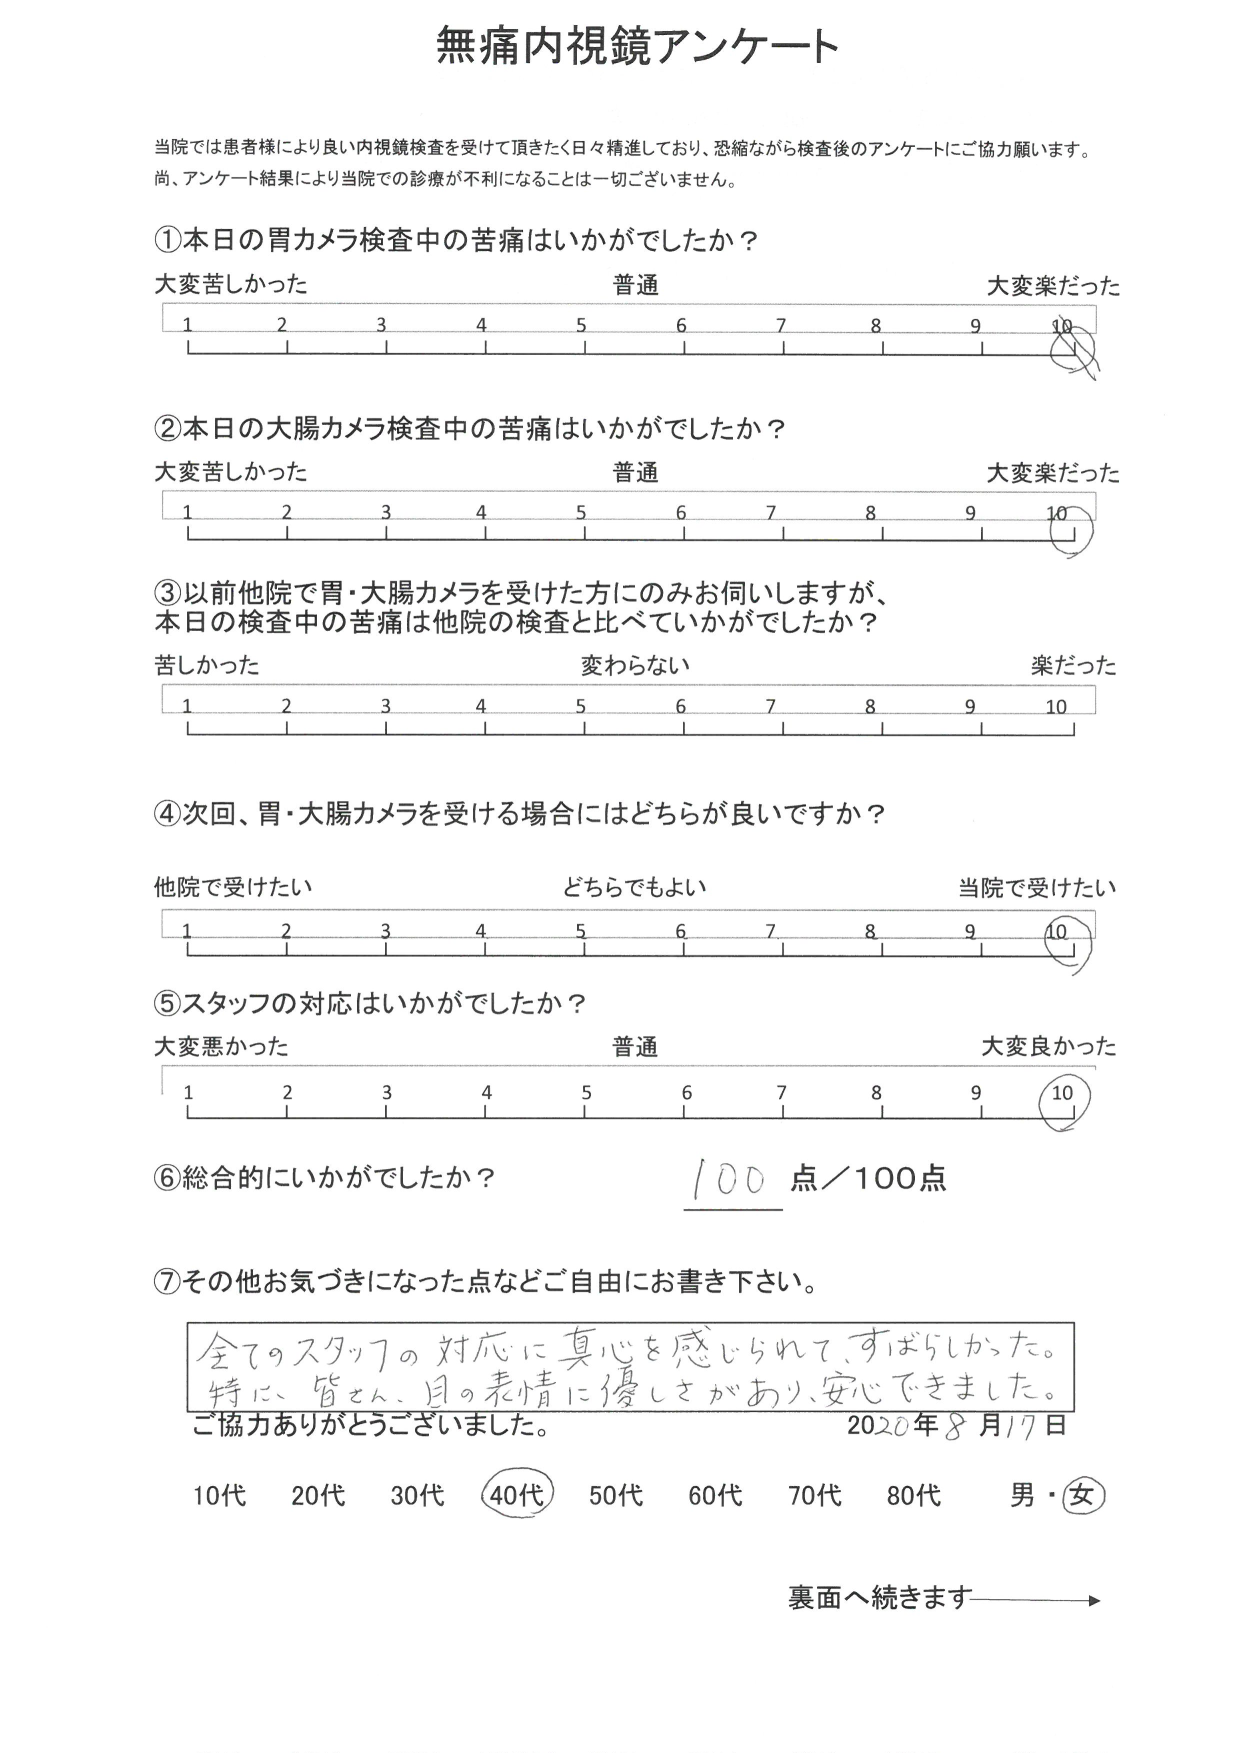 無痛内視鏡アンケート
当院では患者様により良い内視鏡検査を受けて頂きたく日々精進しており、恐縮ながら検査後のアンケートにご協力願います。
尚、アンケート結果により当院での診療が不利になることは一切ございません。
①本日の胃カメラ検査中の苦痛はいかがでしたか？
大変苦しかった 普通 大変楽だった
1 2 3 4 5 6 7 8 9 10
②本日の大腸カメラ検査中の苦痛はいかがでしたか？
大変苦しかった 普通 大変楽だった
1 2 3 4 5 6 7 8 9 10
③以前他院で胃・大腸カメラを受けた方にのみお伺いしますが、
本日の検査中の苦痛は他院の検査と比べていかがでしたか？
苦しかった 変わらない 楽だった
1 2 3 4 5 6 7 8 9 10
④次回、胃・大腸カメラを受ける場合にはどちらが良いですか？
他院で受けたい どちらでもよい 当院で受けたい
1 2 3 4 5 6 7 8 9 10
⑤スタッフの対応はいかがでしたか？
大変悪かった 普通 大変良かった
1 2 3 4 5 6 7 8 9 10
⑥総合的にいかがでしたか？ 100 点／100点
⑦その他お気づきになった点などご自由にお書き下さい。
全てのスタッフの対応に真心を感じられて、すばらしかった。
特に、皆さん、目の表情に優しさがあり、安心できました。
ご協力ありがとうございました。 2020年8月17日
10代 20代 30代 40代 50代 60代 70代 80代 男・女
裏面へ続きます